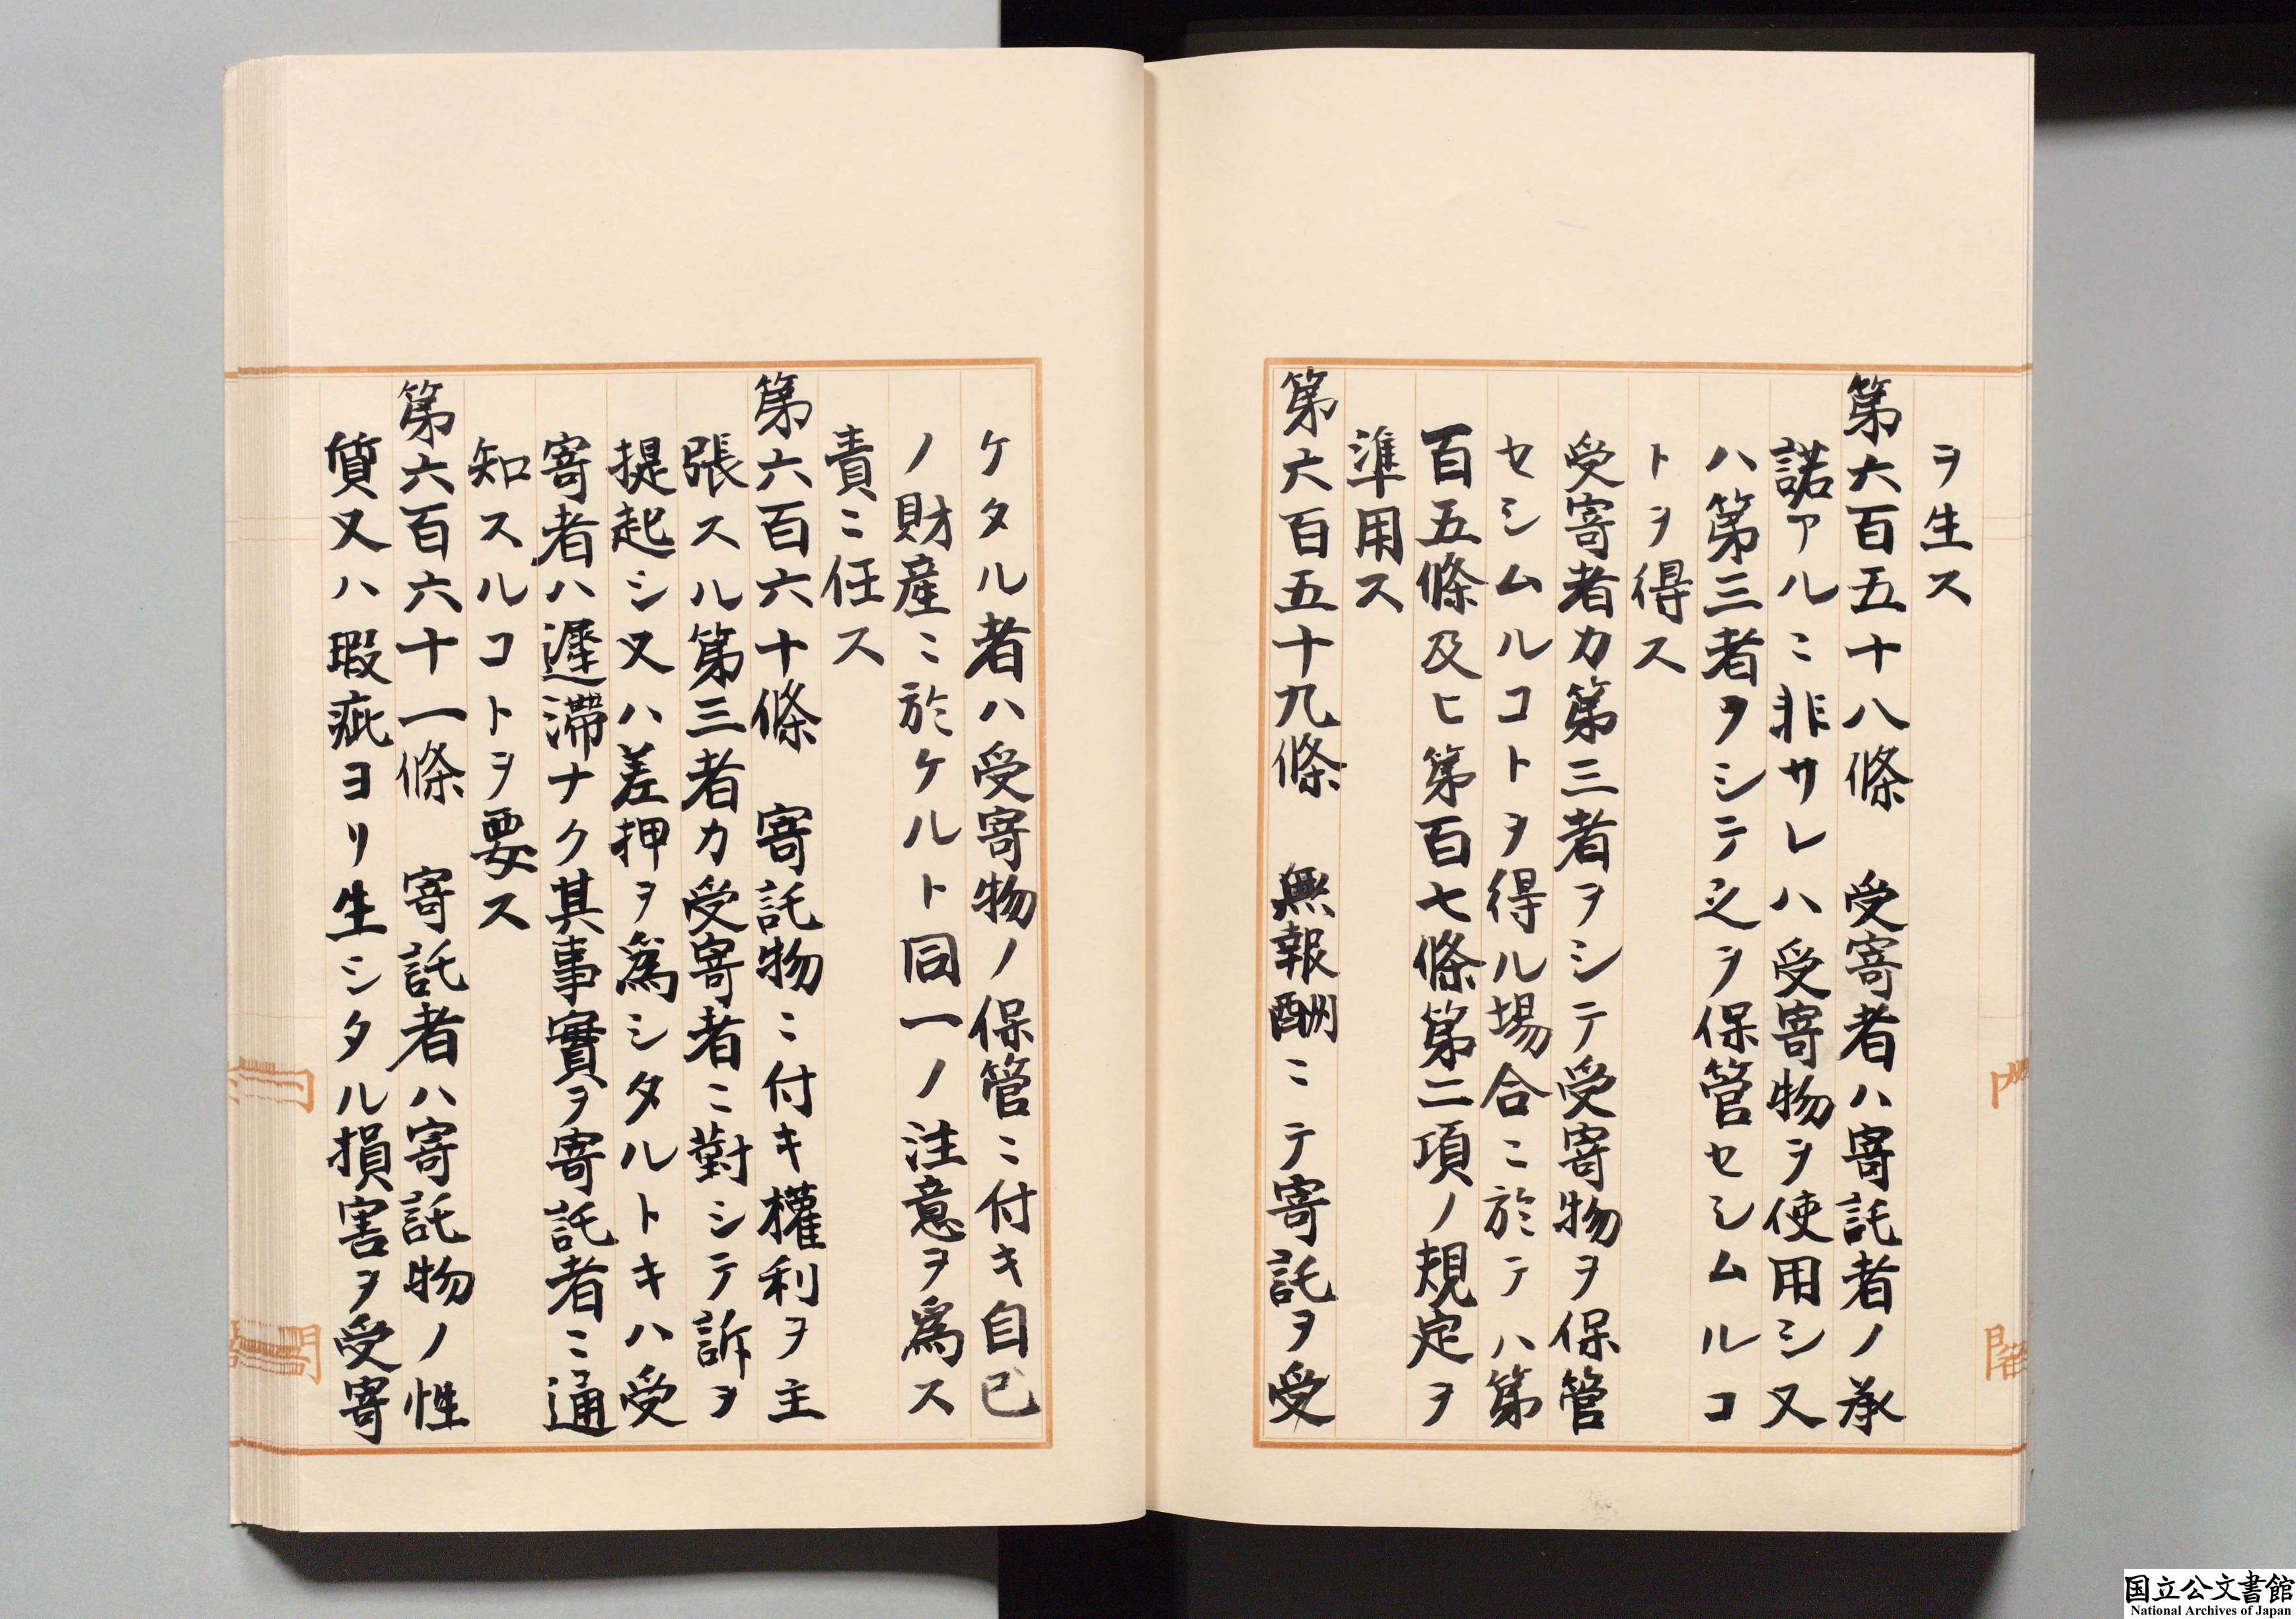 ヲ生ス
第六百五十八條　受寄者ハ寄託者ノ承
諾アルニ非サレハ受寄物ヲ使用シ又
ハ第三者ヲシテ之ヲ保管セシムルコ
トヲ得ス
受寄者カ第三者ヲシテ受寄物ヲ保管
セシムルコトヲ得ル場合ニ於テハ第
百五條及ヒ第百七條第二項ノ規定ヲ
準用ス
第六百五十九條　無報酬ニテ寄託ヲ受
ケタル者ハ受寄物ノ保管ニ付キ自己
ノ財産ニ於ケルト同一ノ注意ヲ爲ス
責ニ任ス
第六百六十條　寄託物ニ付キ權利ヲ主
張スル第三者カ受寄者ニ對シテ訴ヲ
提起シ又ハ差押ヲ爲シタルトキハ受
寄者ハ遲滯ナク其事實ヲ寄託者ニ通
知スルコトヲ要ス
第六百六十一條　寄託者ハ寄託物ノ性
質又ハ瑕疵ヨリ生シタル損害ヲ受寄
国立公文書館
National Archives of Japan